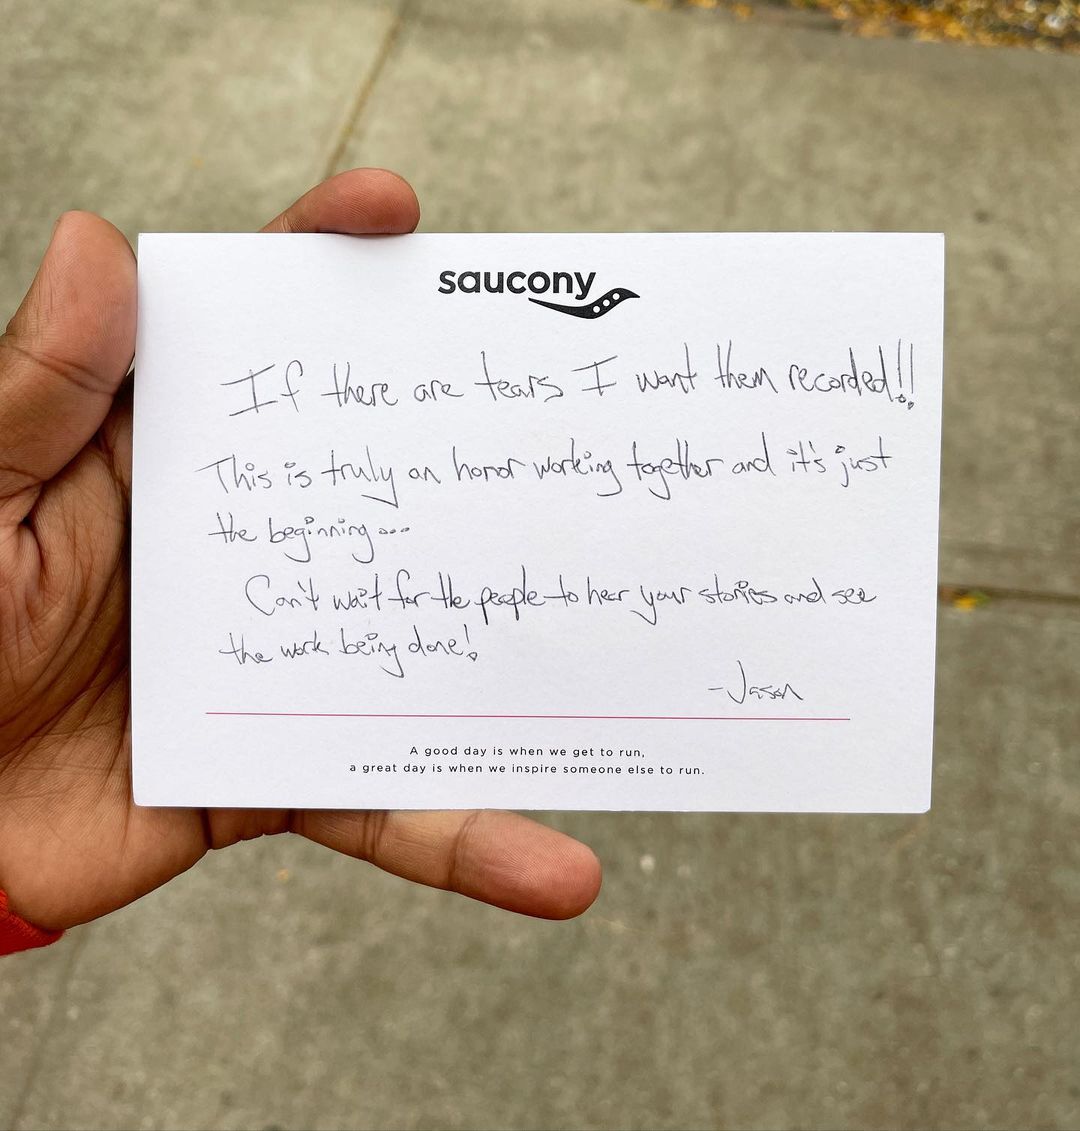 saucony
If there are tears I want them recorded!!
This is truly an honor working together and it's just
the beginning...
Can't wait for the people to hear your stories and see
the work being done!
-Jason
A good day is when we get to run,
a great day is when we inspire someone else to run.